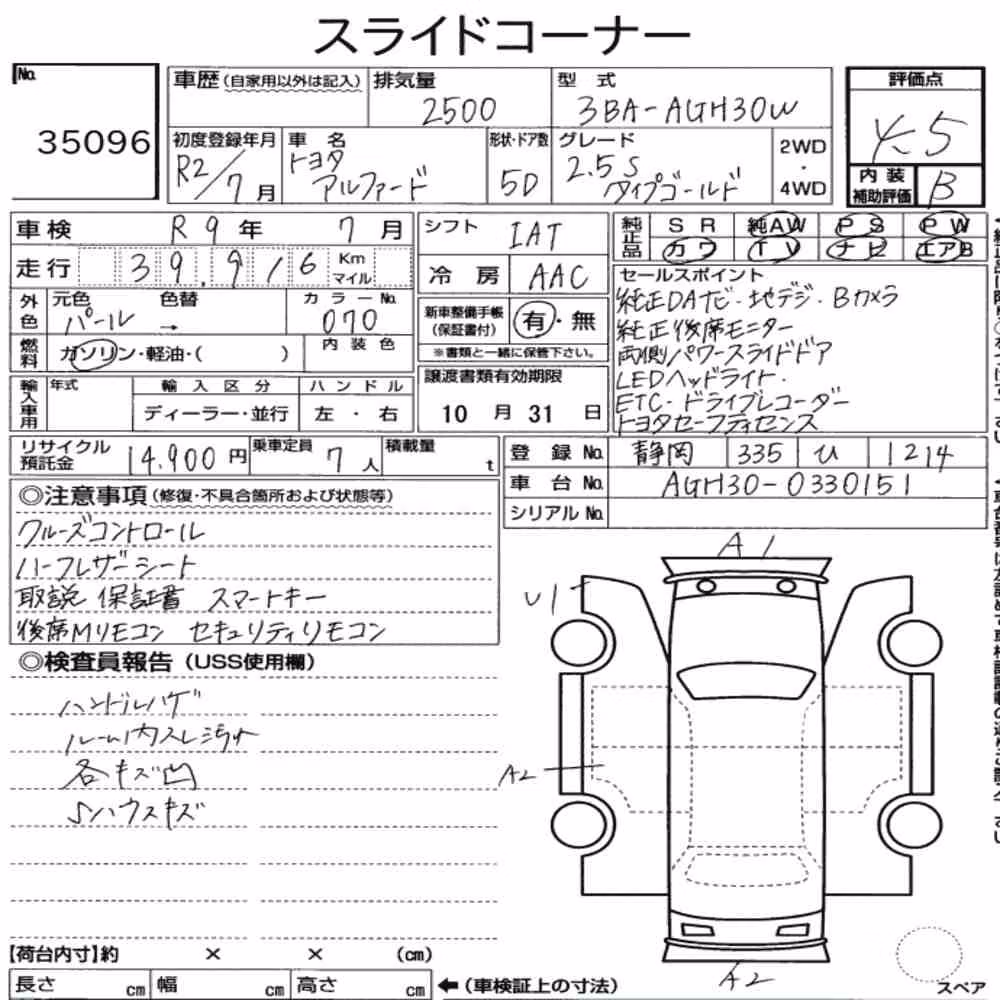 スライドコーナー
No.
35096
車歴(自家用以外は記入)
排気量
2500
型 式
3BA-AGH30W
評価点
4.5
初度登録年月
R2/7月
車 名
トヨタ
アルファード
形状・ドア数
5D
グレード
2.5S
タイプゴールド
2WD
・
4WD
内装
補助評価
B
車検 R9年 7月
走行 39,916 Km
マイル
シフト IAT
冷房 AAC
純正品
SR 純AW PS PW
カワ TV ナビ エアB
外色
元色 色替
パール →
カラーNo.
070
燃料
ガソリン・軽油・( )
内装色
新車整備手帳
(保証書付)
有・無
※書類と一緒に保管下さい。
セールスポイント
純正DAナビ・地デジ・Bカメラ
純正後席モニター
両側パワースライドドア
LEDヘッドライト.
ETC・ドライブレコーダー
トヨタセーフティセンス
輸入車用
年式
輸入区分
ディーラー・並行
ハンドル
左・右
譲渡書類有効期限
10月31日
リサイクル
預託金
14,900円
乗車定員
7人
積載量
t
登録No. 静岡 335 ひ 1214
車台No. AGH30-0330151
シリアルNo.
◎注意事項(修復・不具合箇所および状態等)
クルーズコントロール
ハーフレザーシート
取説 保証書 スマートキー
後席Mリモコン セキュリティリモコン
◎検査員報告(USS使用欄)
ハンドルハゲ
ルーム内スレ汚れ
各キズ凹
Sハウスキズ
A1
U1
A2
A2
スペア
【荷台内寸】約 × × (cm)
長さ cm 幅 cm 高さ cm
←(車検証上の寸法)